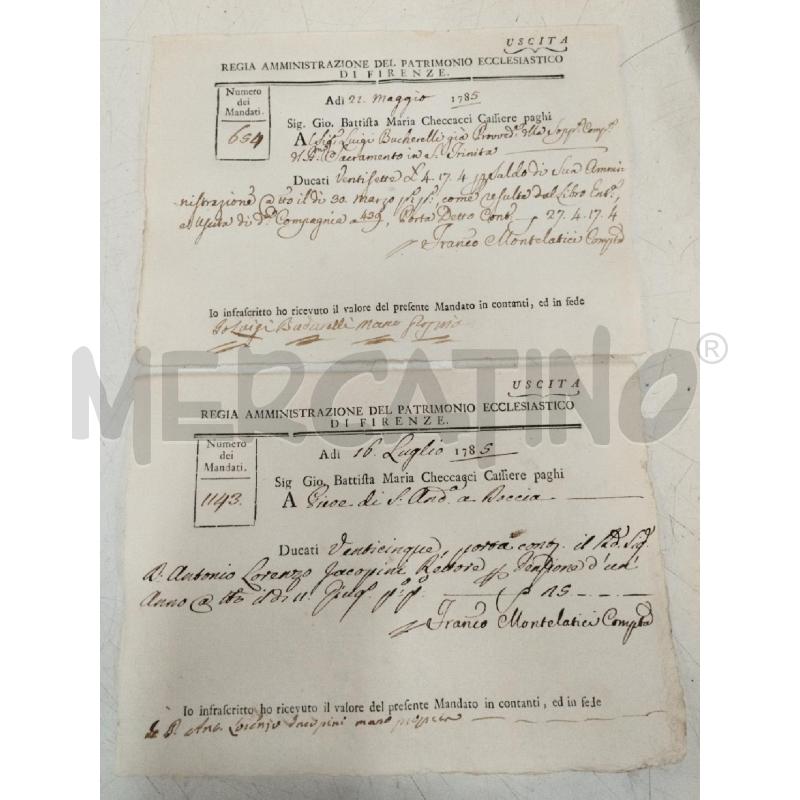 USCITA
REGIA AMMINISTRAZIONE DEL PATRIMONIO ECCLESIASTICO
DI FIRENZE.
Numero
dei
Mandati.
654
Adì 21. Maggio 1785
Sig. Gio. Battista Maria Checcacci Cassiere paghi
Al Sigr. Luigi Bucherelli già Provvedre. della Soppa. Compa.
del SSmo. Sacramento in Sa. Trinita
Ducati Ventisette £ 4. 17. 4 p saldo di Sua Ammi-
nistrazione @ tto il dì 30. Marzo po. po. come resulta dal Libro Enta.,
e Uscita di da. Compagnia a 439, Porta Detto Conti 27. 4. 17. 4
Franco Montelatici Compta
Io infrascritto ho ricevuto il valore del presente Mandato in contanti, ed in sede
Io Luigi Bucherelli mano propria
MERCATINO®
USCITA
REGIA AMMINISTRAZIONE DEL PATRIMONIO ECCLESIASTICO
DI FIRENZE.
Numero
dei
Mandati.
1143.
Adì 16. Luglio 1785
Sig Gio. Battista Maria Checcacci Cassiere paghi
A Pieve di S. Anda. a
Ducati Venticinque, porta conti. il Sig.
Antonio Lorenzo Jacopini Rettore Pensione d'un'
Anno @ tto il dì 11. Giugo. po. po. 25
Franco Montelatici Compta
Io infrascritto ho ricevuto il valore del presente Mandato in contanti, ed in sede
Io P. Anto. Lorenzo Jacopini mano propria